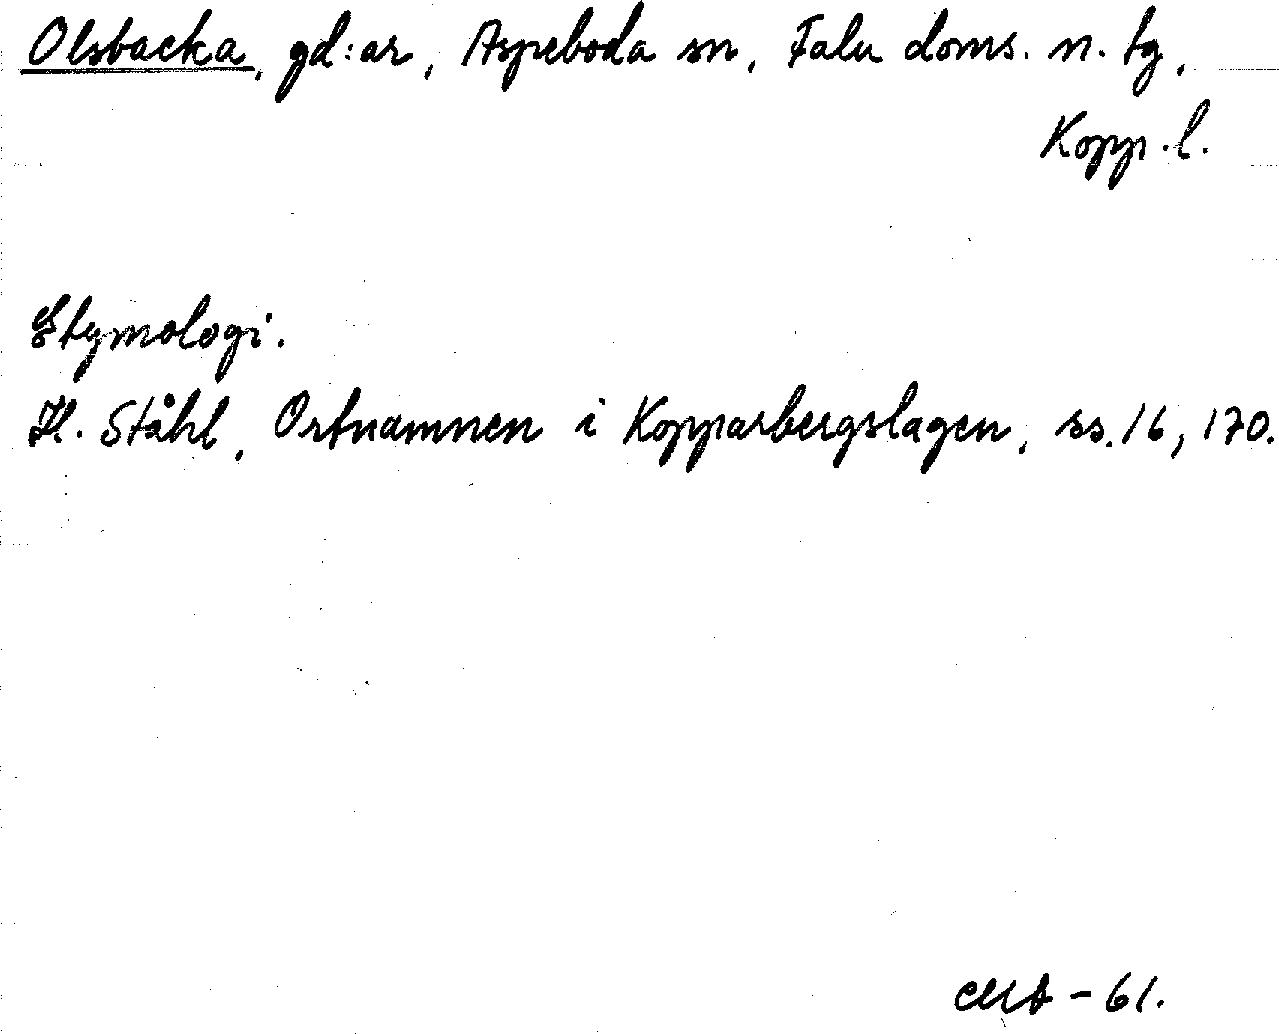 Olsbacka, gd:ar, Aspeboda sn, Falu doms. n. tg,
Kopp.l.
Etymologi.
H. Ståhl, Ortnamnen i Kopparbergslagen, ss. 16, 170.
-61.